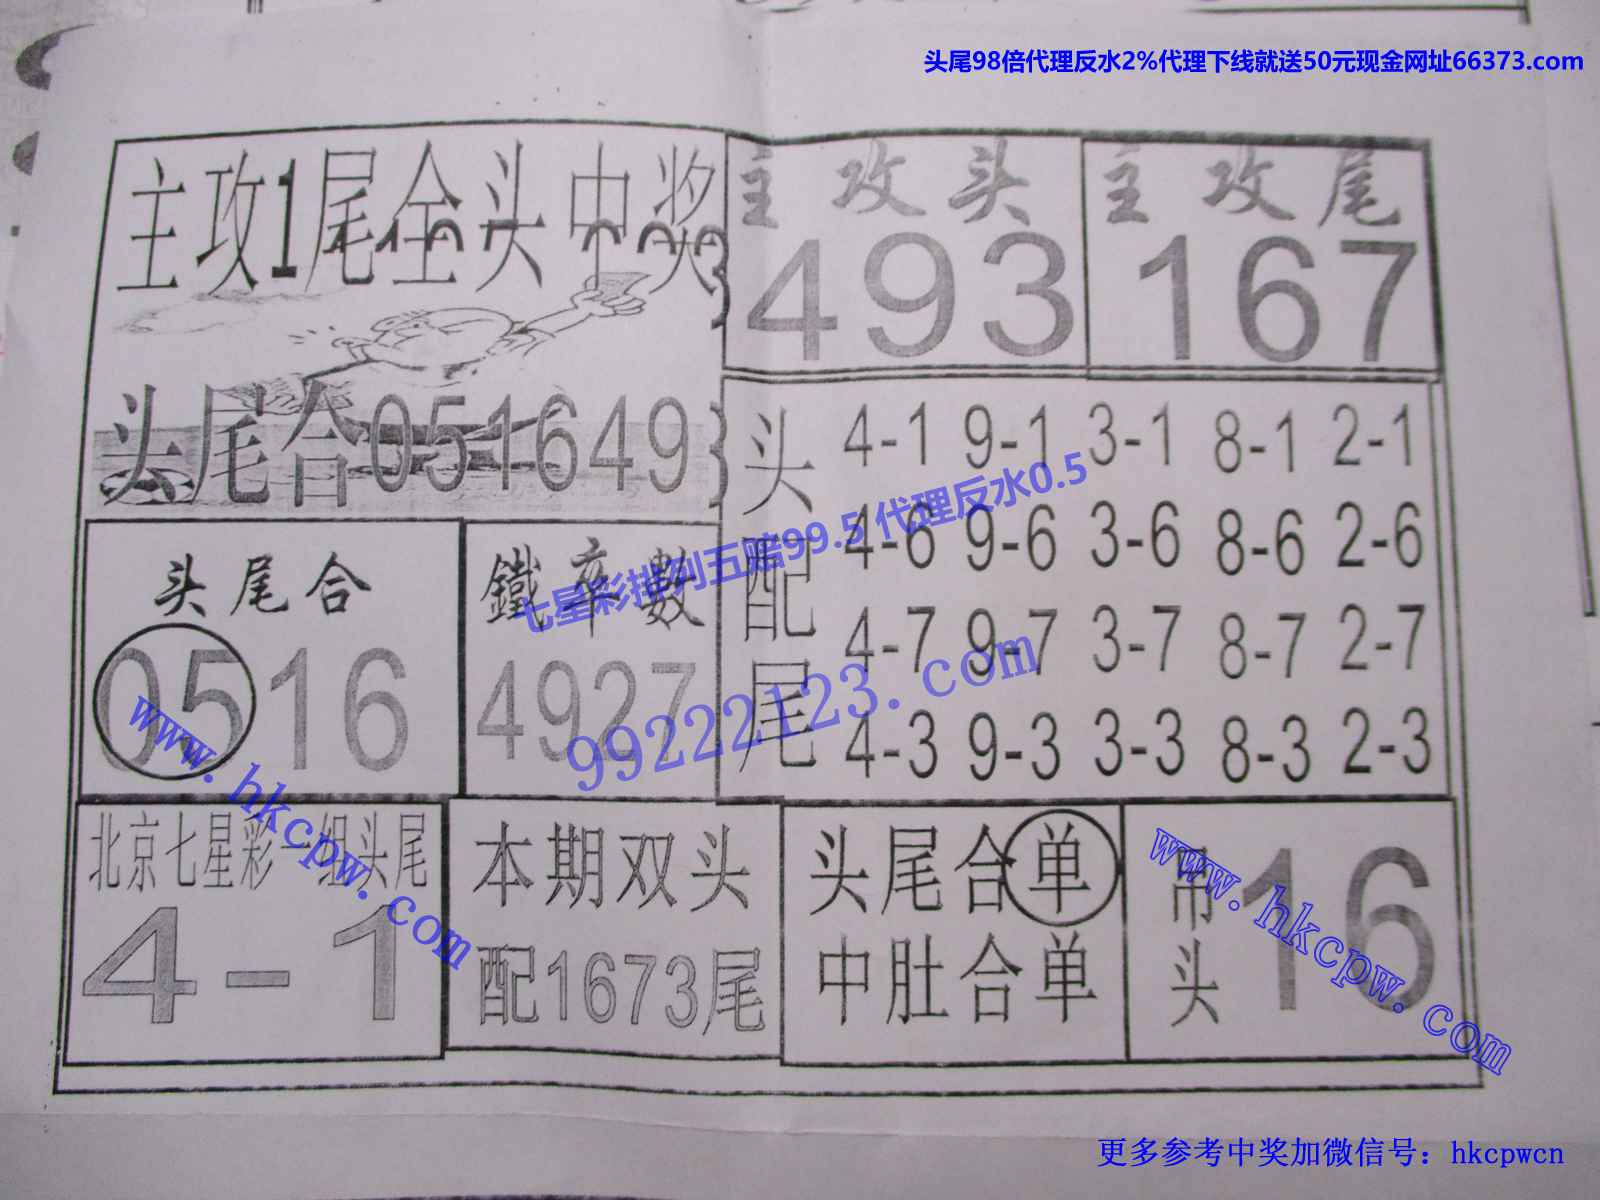 头尾98倍代理反水2%代理下线就送50元现金网址66373.com
主攻1尾全头中奖
主攻头
493
主攻尾
167
头尾合051649
头配尾
4-1 9-1 3-1 8-1 2-1
4-6 9-6 3-6 8-6 2-6
4-7 9-7 3-7 8-7 2-7
4-3 9-3 3-3 8-3 2-3
七星彩排列五赔99.5 代理反水0.5
头尾合
0516
鐵卒數
4927
99222123.com
www.hkcpw.com
北京七星彩一组头尾
4-1
本期双头
配1673尾
头尾合单
中肚合单
吊头
16
www.hkcpw.com
更多参考中奖加微信号：hkcpwcn